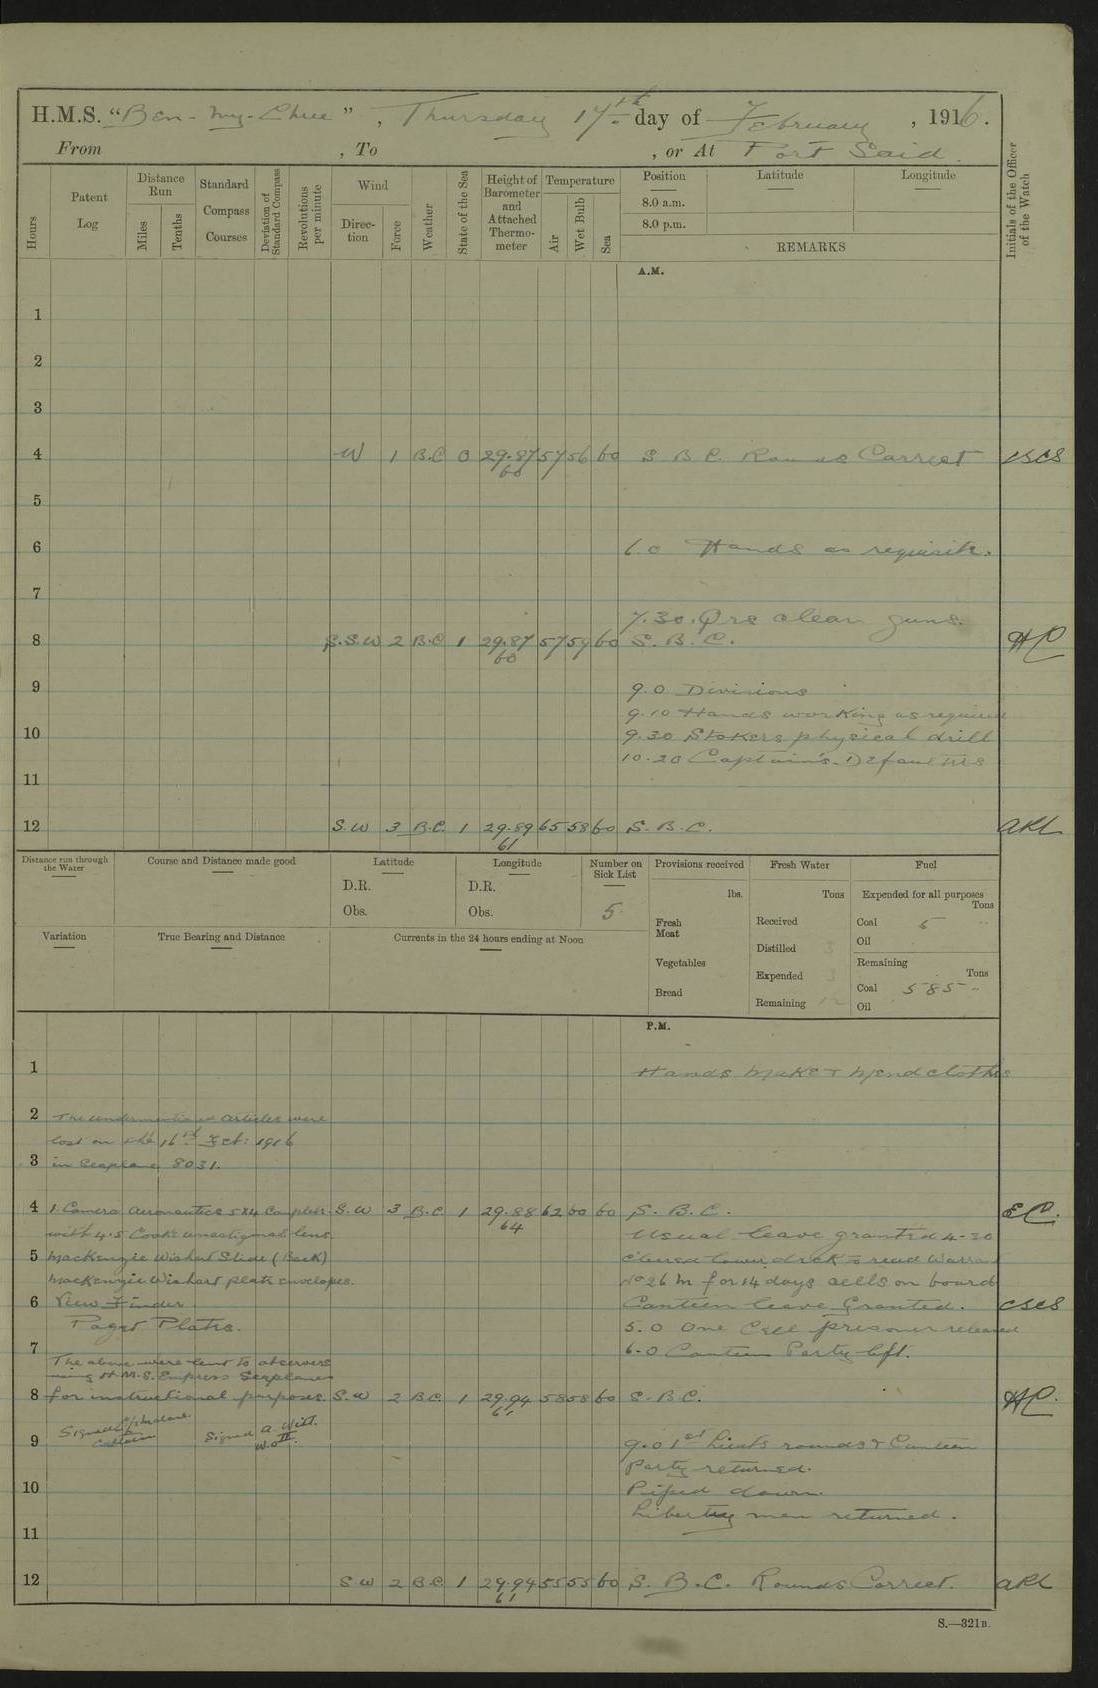 H.M.S. "Ben-my-Chree", Thursday 17th day of February, 1916.
From , To , or At Port Said.
Hours
Patent Log
Distance Run
Miles
Tenths
Standard Compass Courses
Deviation of Standard Compass
Revolutions per minute
Wind
Direction
Force
Weather
State of the Sea
Height of Barometer and Attached Thermometer
Temperature
Air
Wet Bulb
Sea
Position
Latitude
Longitude
8.0 a.m.
8.0 p.m.
REMARKS
Initials of the Officer of the Watch
A.M.
1
2
3
4 W 1 B.C 0 29.87 57 56 60 S B C. Rounds Correct
60
5
6 6.0 Hands as requisite.
7
7.30. Qrs clean guns.
8 S.S.W 2 B.C 1 29.87 57 59 60 S. B. C.
60
9 9.0 Divisions
9.10 Hands working as required
10 9.30 Stokers physical drill
10.20 Captain's Defaulters
11
12 S.W 3 B.C. 1 29.89 65 58 60 S. B. C.
61
Distance run through the Water
Course and Distance made good
Latitude
D.R.
Obs.
Longitude
D.R.
Obs.
Number on Sick List
5
Provisions received
lbs.
Fresh Meat
Vegetables
Bread
Fresh Water
Tons
Received
Distilled 3
Expended 3
Remaining
Fuel
Expended for all purposes
Tons
Coal 5
Oil
Remaining
Tons
Coal 585
Oil
Variation
True Bearing and Distance
Currents in the 24 hours ending at Noon
P.M.
1 Hands make & mend clothes
2 The undermentioned articles were
lost on the 16th Feb: 1916
3 in Seaplane 8031.
4 1 Camera Aeronautics 5x4 Complete S.W 3 B.C. 1 29.88 62 60 60 S. B. C. EC.
64
with 4.5 Cooke anastigmat lens Usual leave granted 4-30
5 Mackenzie Wishart Slide (Back) Cleared lower deck & read Warrant
Mackenzie Wishart plate envelopes. No 26 M for 14 days cells on board
6 View Finder Canteen leave Granted.
Paget Plates. 5.0 One Cell prisoner released
7 6-0 Canteen Party left.
The above were lent to observers
using H.M.S. Empress Seaplanes
8 for instructional purposes. S.W 2 B.C. 1 29.94 58 58 60 S. B.C.
61
Signed
Captain
Signed A. Witt.
W.O. II.
9 9.0 1st Lieuts rounds & Canteen
Party returned.
10 Piped down.
Liberty men returned.
11
12 S W 2 B.C. 1 29.94 55 55 60 S. B. C. Rounds Correct.
61
S.—321B.